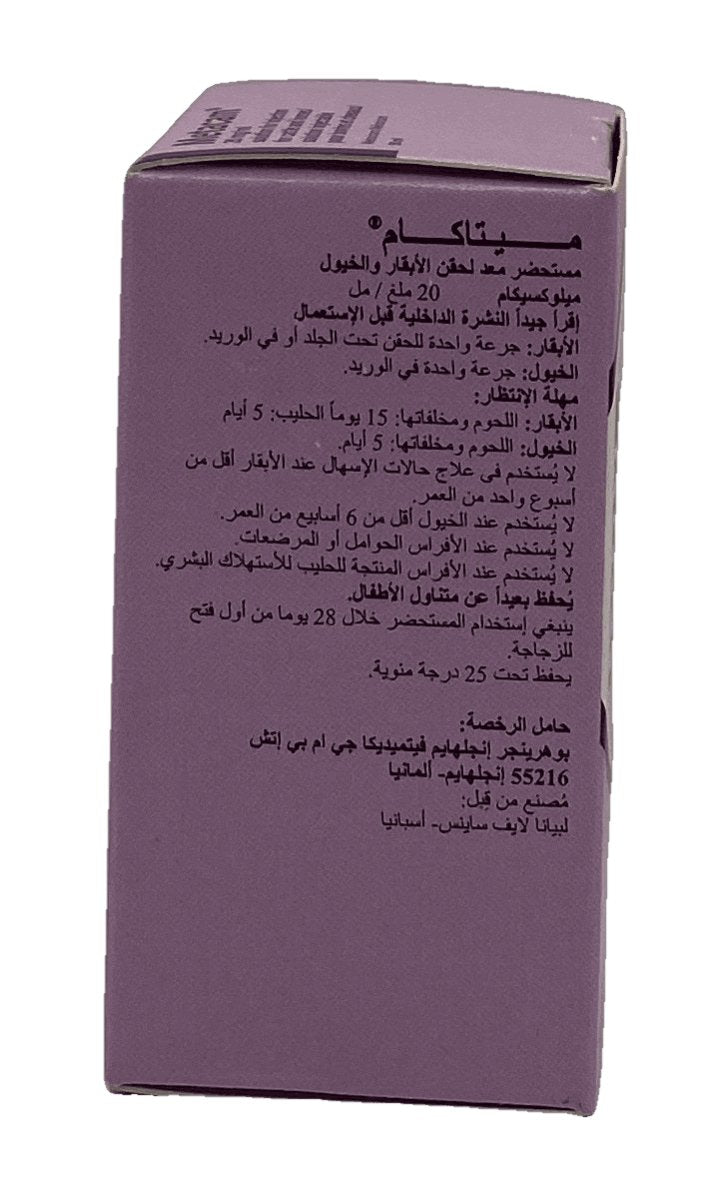 Metacam®
20 mg/ml
solution for injection
for cattle and horses
solution injectable
pour bovins et chevaux
ميتاكام®
مستحضر معد لحقن الأبقار والخيول
ميلوكسيكام 20 ملغ / مل
إقرأ جيداً النشرة الداخلية قبل الإستعمال
الأبقار: جرعة واحدة للحقن تحت الجلد أو في الوريد.
الخيول: جرعة واحدة في الوريد.
مهلة الإنتظار:
الأبقار: اللحوم ومخلفاتها: 15 يوماً الحليب: 5 أيام
الخيول: اللحوم ومخلفاتها: 5 أيام.
لا يُستخدم فى علاج حالات الإسهال عند الأبقار أقل من
أسبوع واحد من العمر.
لا يُستخدم عند الخيول أقل من 6 أسابيع من العمر.
لا يُستخدم عند الأفراس الحوامل أو المرضعات.
لا يُستخدم عند الأفراس المنتجة للحليب للأستهلاك البشري.
يُحفظ بعيداً عن متناول الأطفال.
ينبغي إستخدام المستحضر خلال 28 يوما من أول فتح
للزجاجة.
يحفظ تحت 25 درجة منوية.
حامل الرخصة:
بوهرينجر إنجلهايم فيتميديكا جي ام بي إتش
55216 إنجلهايم- ألمانيا
مُصنع من قِبل:
لبيانا لايف ساينس- أسبانيا